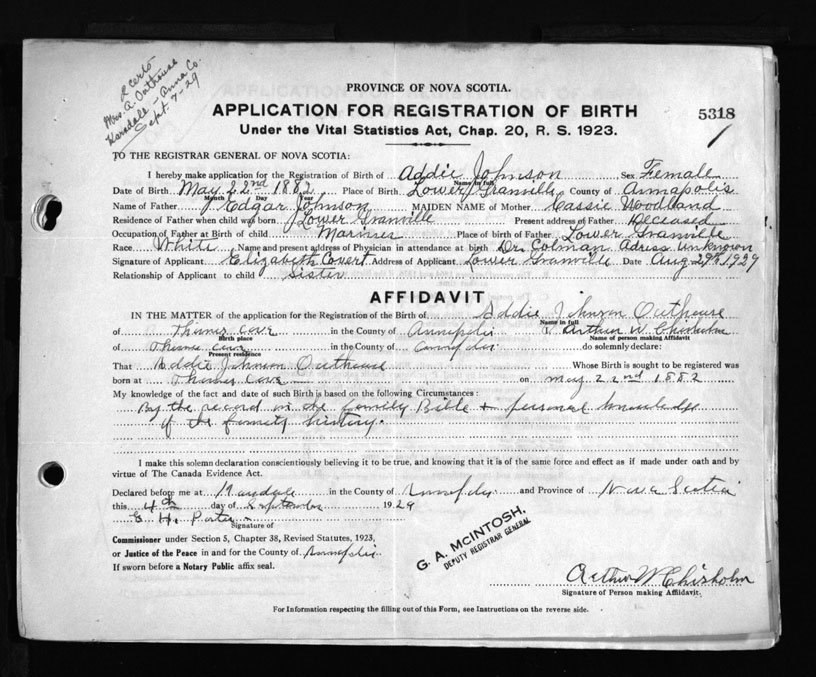 2 Certs
Mrs. A. Outhouse
Karsdale - Anna Co.
Sept. 7-29
PROVINCE OF NOVA SCOTIA.
APPLICATION FOR REGISTRATION OF BIRTH
5318
1
Under the Vital Statistics Act, Chap. 20, R. S. 1923.
TO THE REGISTRAR GENERAL OF NOVA SCOTIA:
I hereby make application for the Registration of Birth of Addie Johnson Sex Female
Name in full
Date of Birth May 22nd 1882 Place of Birth Lower Granville County of Annapolis
Month Day Year
Name of Father J Edgar Johnson MAIDEN NAME of Mother Cassie Woodland
Residence of Father when child was born Lower Granville Present address of Father Deceased
Occupation of Father at Birth of child Mariner Place of birth of Father Lower Granville
Race White Name and present address of Physician in attendance at birth Dr. Colman Adress unknown
Signature of Applicant Elizabeth Covert Address of Applicant Lower Granville Date Aug 29th 1929
Relationship of Applicant to child Sister
AFFIDAVIT
IN THE MATTER of the application for the Registration of the Birth of Addie Johnson Outhouse
Name in full
of Thornes Cove in the County of Annapolis I Arthur W Chisholm
Birth place Name of person making Affidavit
of Thorne Cove in the County of Annapolis do solemnly declare:
Present residence
That Addie Johnson Outhouse Whose Birth is sought to be registered was
born at Thornes Cove on May 22nd 1882
My knowledge of the fact and date of such Birth is based on the following Circumstances:
By the record in the family Bible & personal knowledge
of the family history.
I make this solemn declaration conscientiously believing it to be true, and knowing that it is of the same force and effect as if made under oath and by
virtue of The Canada Evidence Act.
Declared before me at Karsdale in the County of Annapolis and Province of Nova Scotia
this 4th day of September 1929
G. H. Porter
Signature of
Commissioner under Section 5, Chapter 38, Revised Statutes, 1923,
or Justice of the Peace in and for the County of Annapolis
If sworn before a Notary Public affix seal.
G. A. MCINTOSH,
DEPUTY REGISTRAR GENERAL
Arthur W Chisholm
Signature of Person making Affidavit.
For Information respecting the filling out of this Form, see Instructions on the reverse side.